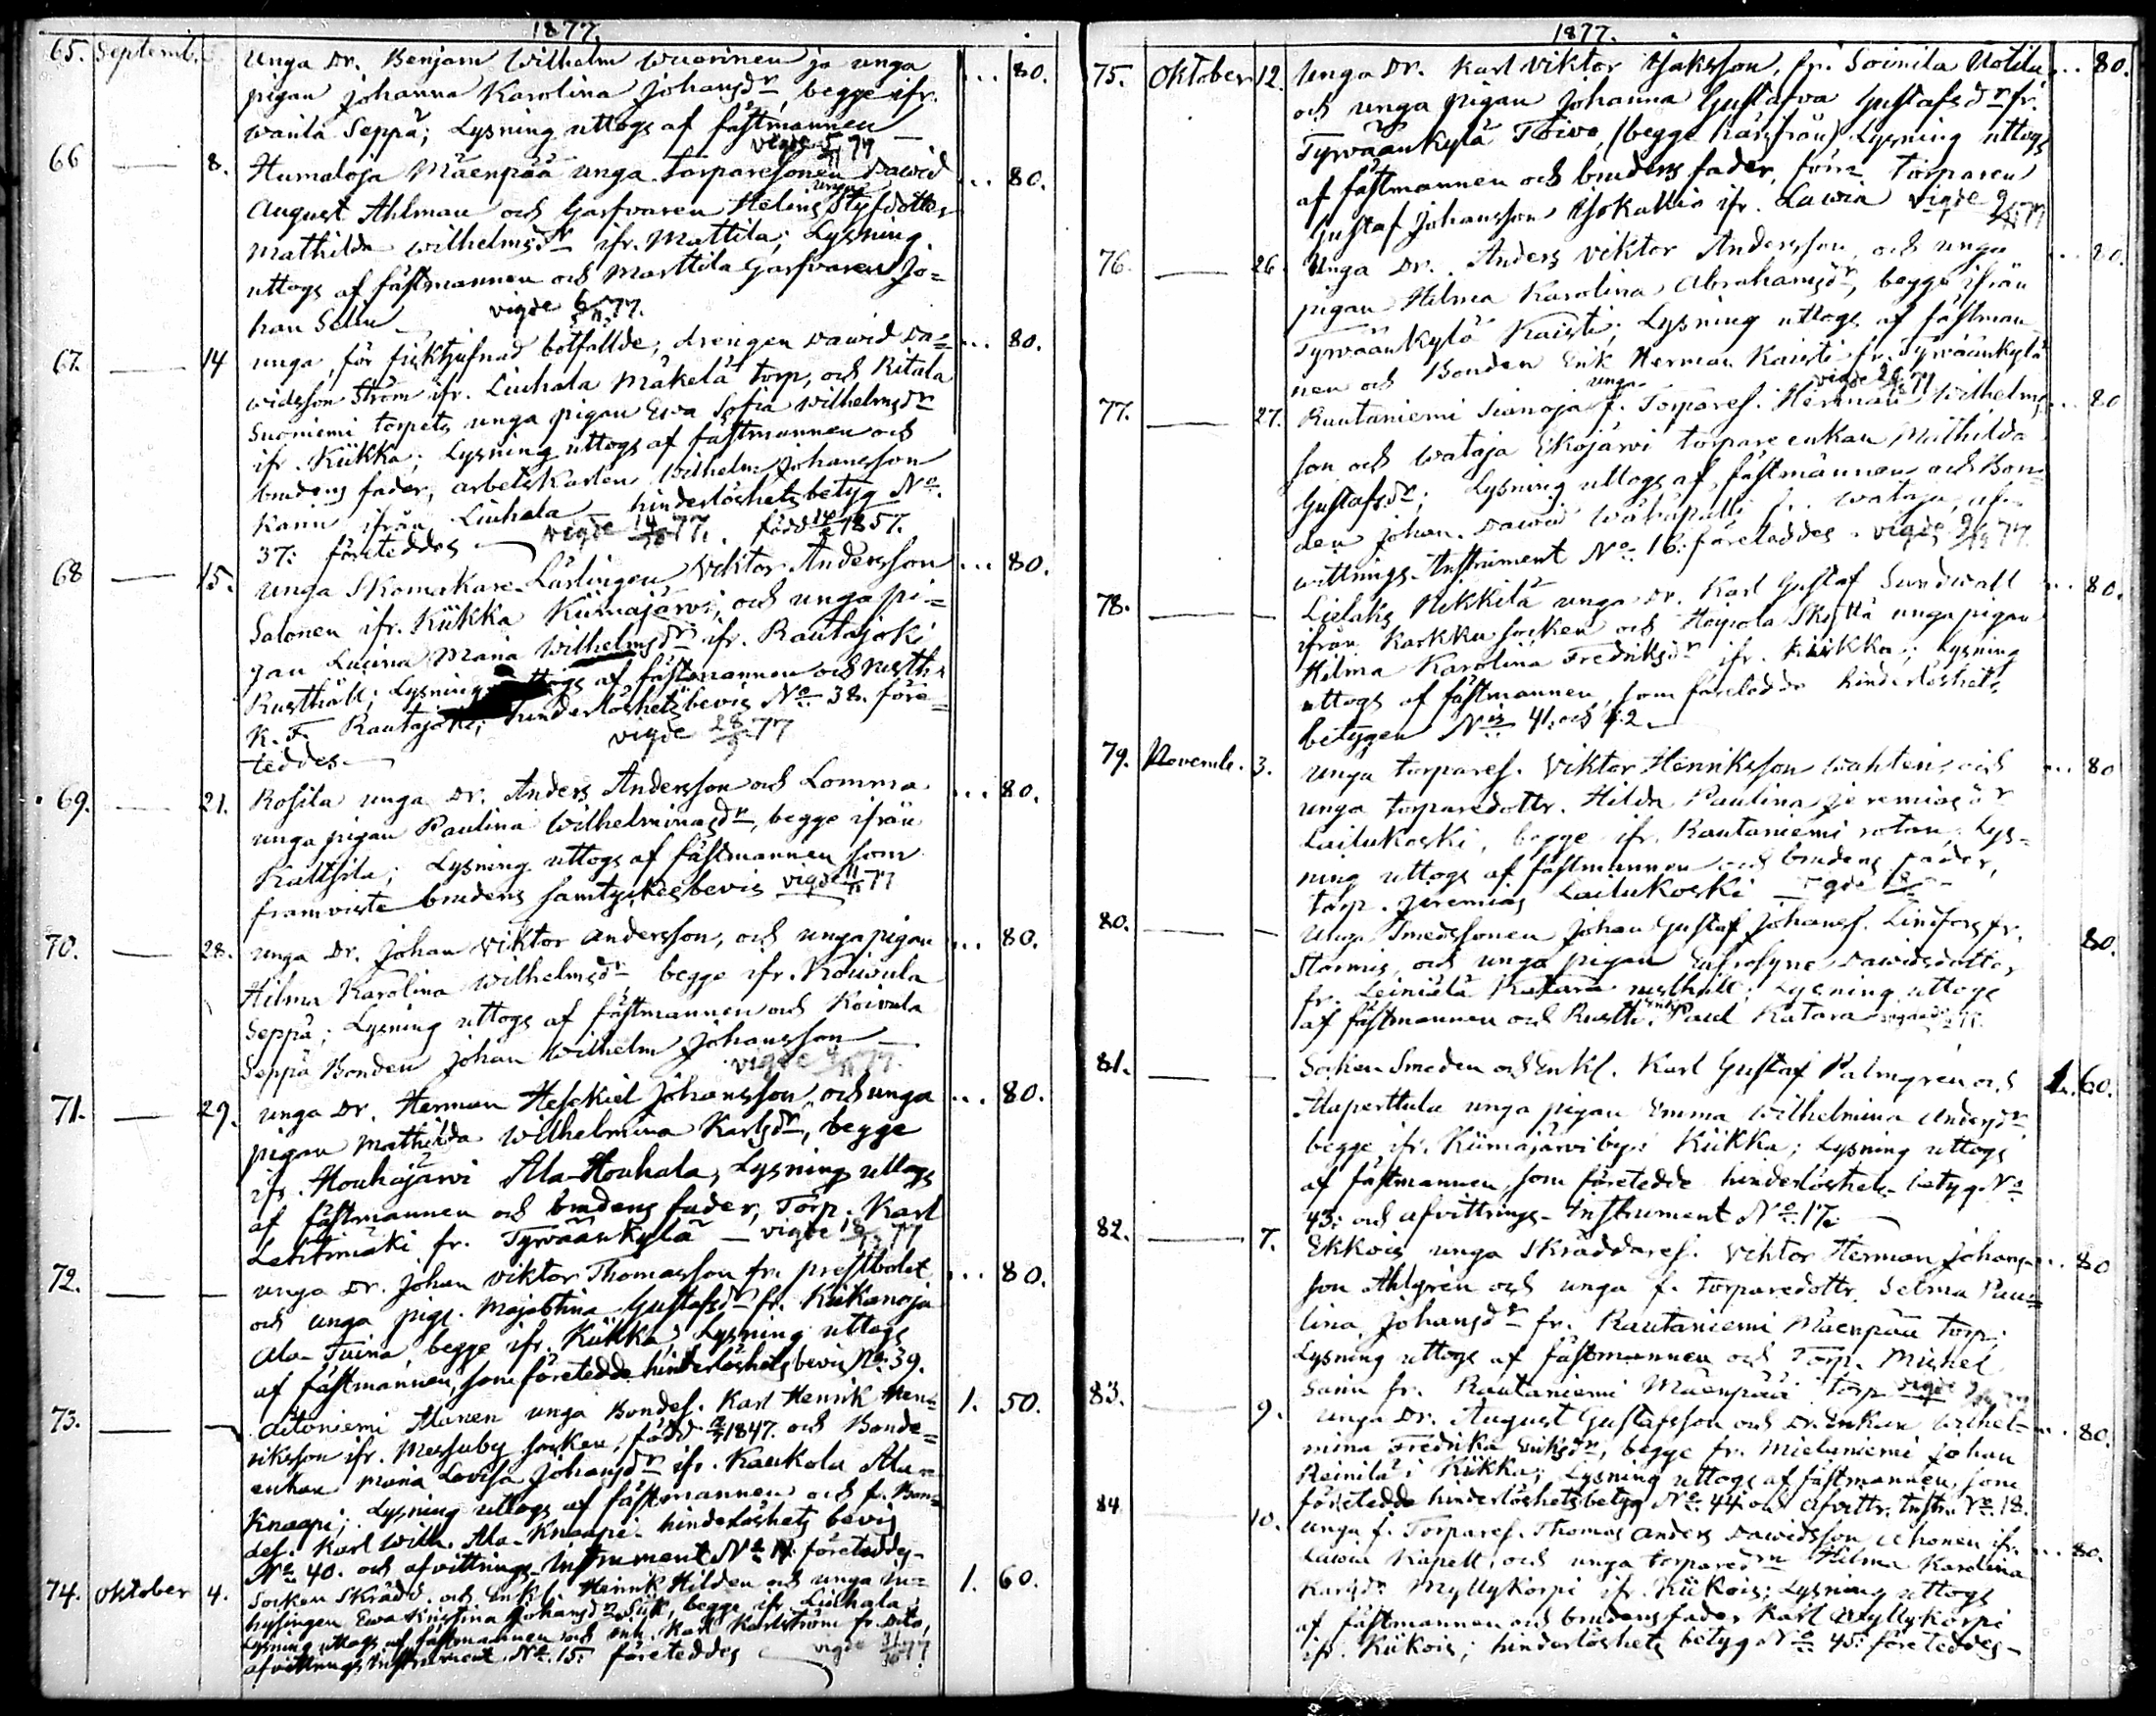 1877.
65. Septemb. Unga Dr. Benjam Wilhelm Wuorinen ja unga ... 80.
pigan Johanna Karolina Johansdr, begge ifr.
Wanla Seppä; Lysning uttogs af fästmannen —
vigde 5/11 77
66 — 8. Humaloja Mäenpää unga torparesonen Dawid ... 80.
August Ahlman och Garfvaren Helins unga Styfdotter
Mathilda Wilhelmsdr ifr. Mattila; Lysning
uttogs af fästmannen och Marttila Garfvaren Jo=
han Selin — vigde 6/11 77.
67. — 14 unga, för lägersmål botfällde; drengen Dawid Da= ... 80.
widsson Ström ifr. Liuhala Mäkelä torp, och Ritala
Suoniemi torpets unga pigan Ewa Sofia Wilhelmsdr
ifr. Kiikka; Lysning uttogs af fästmannen och
brudens fader, arbetskarlen Wilhelm Johansson
Kanin ifrån Liuhala — hinderlöshets betyg No.
37: företeddes — vigde 14/10 77. född 1857.
68 — 15. unga Skomakare-Lärlingen Viktor Andersson ... 80.
Salonen ifr. Kiikka Kiimajärvi, och unga pi=
gan Lucina Maria Wilhelmsdr ifr. Rautajoki
Rusthåll; Lysning uttogs af fästmannen och rusth.
K. F. Rautajoki; hinderlöshetsbevis No 38. före=
teddes — vigde 28/9 77
69. — 21. Rosila unga Dr. Anders Andersson och Lomma ... 80.
unga pigan Paulina Wilhelminasdr, begge ifrån
Kaltsila; Lysning uttogs af fästmannen som
framviste brudens samtyckesbevis vigde 11/11 77
70. — 28. unga Dr. Johan Viktor Andersson, och unga pigan ... 80.
Hilma Karolina Wilhelmsdr begge ifr. Koiwula
Seppä; Lysning uttogs af fästmannen och Koivula
Seppä Bonden Johan Wilhelm Johansson —
vigde 77.
71. — 29. unga Dr. Herman Hesekiel Johansson, och unga ... 80.
pigan Mathilda Wilhelmina Karlsdr, begge
ifr. Houhajärwi Ala-Houhala; Lysning uttogs
af fästmannen och brudens fader, Torp. Karl
Lehtimäki fr. Tyrwäänkylä — vigde 77
72. — — unga Dr. Johan Viktor Thomasson fr. prestbolet ... 80.
och unga pig. Majastina Gustafsdr fr. Kiikanoja
Ala-Tuina, begge ifr. Kiikka; Lysning uttogs
af fästmannen, som företedde hinderlöshetsbevis No: 39.
73. — Aitoniemi Alanen unga Bondes. Karl Henrik Hen= 1. 50.
riksson ifr. Messuby socken, född 1847. och Bonde=
enkan Maria Lovisa Johansdr ifr. Kaukola Ala
Knaapi; Lysning uttogs af fästmannen och f. Bon=
des. Karl Wilh. Ala-Knaapi. hinderlöshets bevis
No 40. och afvittrings-Instrument No företeddes —
74. Oktober 4. Socken Skrädd. och Enkl. Henrik Hilden och unga in= 1. 60.
hysingen Ewa Kristina Johansdr begge ifr. Liuhala;
Lysning uttogs af fästmannen och Karl Karlström fr. dito,
afvittrings Instrument No. 15. företeddes — vigde 77
1877.
75. Oktober 12. Unga Dr. Karl Viktor Isaksson, fr. Soinila Uotila ... 80.
och unga pigan Johanna Gustafva Gustafsdr fr.
Tyrwäänkylä Toivo, (begge härifrån) Lysning uttogs
af fästmannen och brudens fader, förre Torparen
Gustaf Johansson Isokallio ifr. Lawia vigde 77
76. — 26. Unga Dr. Anders Viktor Andersson, och unga ... 80.
pigan Hilma Karolina Abrahamsdr, begge ifrån
Tyrwäänkylä Kaisti; Lysning uttogs af fästman
nen och Bonden Erik Herman Kaisti fr. Tyrwäänkylä
vigde 77
77. — 27. Rautaniemi unga f. Torpares. Herman Wilhelms ... 80
son och Wataja Ekojärvi torpareenkan Mathilda
Gustafsdr; Lysning uttogs af fästmannen och Bon=
den Johan Dawid Wataja, af=
wittrings-Instrument No 16: företeddes — vigde 77.
78. — — Lielaks Nikkilä unga Dr. Karl Gustaf Sundwall ... 80.
ifrån Karkku socken och Heipola Skyttä unga pigan
Hilma Karolina Fredriksdr ifr. Kiikka; Lysning
uttogs af fästmannen, som företedde hinderlöshets
betygen No:is 41. och 42 —
79. Novemb. 3. Unga torpares. Viktor Henriksson Wahteri, och ... 80
unga torparedottr. Hilda Paulina Jeremiasdr
Lailukoski, begge ifr. Rautaniemi rotan; Lys=
ning uttogs af fästmannen och brudens fader,
torp. Jeremias Lailukoski — vigde
80. — — Unga Smedssonen Johan Gustaf Johans. Lindfors fr. 80.
Stormis, och unga pigan Eufrosyne Dawidsdotter
fr. Leiniälä Katara rusthåll; Lysning uttogs
af fästmannen och Rusth. Enkl. Paul Katara
81. — — Socken Smeden och Enkl. Karl Gustaf Palmgren och 1. 60.
Alaperttula unga pigan Emma Wilhelmina Andersdr
begge ifr. Kiimajärvi by i Kiikka; Lysning uttogs
af fästmannen, som företedde hinderlöshets-betyg No
43: och afvittrings-Instrument No 17. —
82. — 7. Ekkois unga Skräddares. Viktor Herman Johans= ... 80
son Ahlgrén och unga f. torparedottr. Selma Pau=
lina Johansdr fr. Rautaniemi Mäenpää torp;
Lysning uttogs af fästmannen och Torp. Michel
fr. Rautaniemi Mäenpää torp vigde
83. — 9. Unga Dr. August Gustafsson och Dr. Enkan Wilhel= ... 80.
mina Fredrika Eriksdr, begge fr. Mielaniemi Johan
Reinilä i Kiikka; Lysning uttogs af fästmannen, som
företedde hinderlöshetsbetyg No 44. och Afvittr. Instr. No 18.
84 10. Unga f. Torpares. Thomas Anders Dawidsson Ahonen ifr. ... 80.
Lawia Kapell, och unga torparedrn Hilma Karolina
Karlsdr Myllykorpi ifr. Kiikois; Lysning uttogs
af fästmannen och brudens fader Karl Myllykorpi
ifr. Kiikois; hinderlöshets betyg No 45: företeddes —